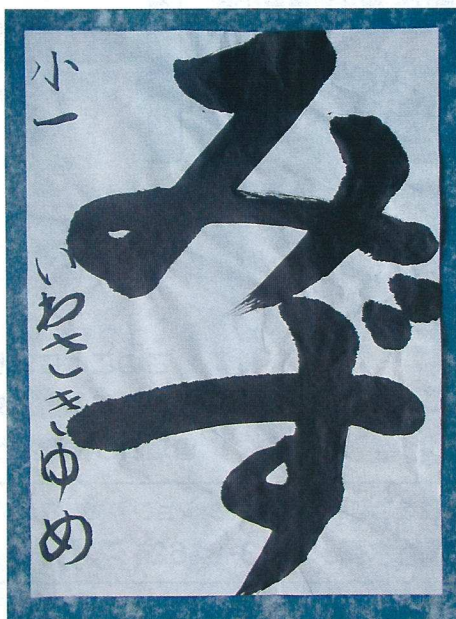 みず
小一 いわさきゆめ